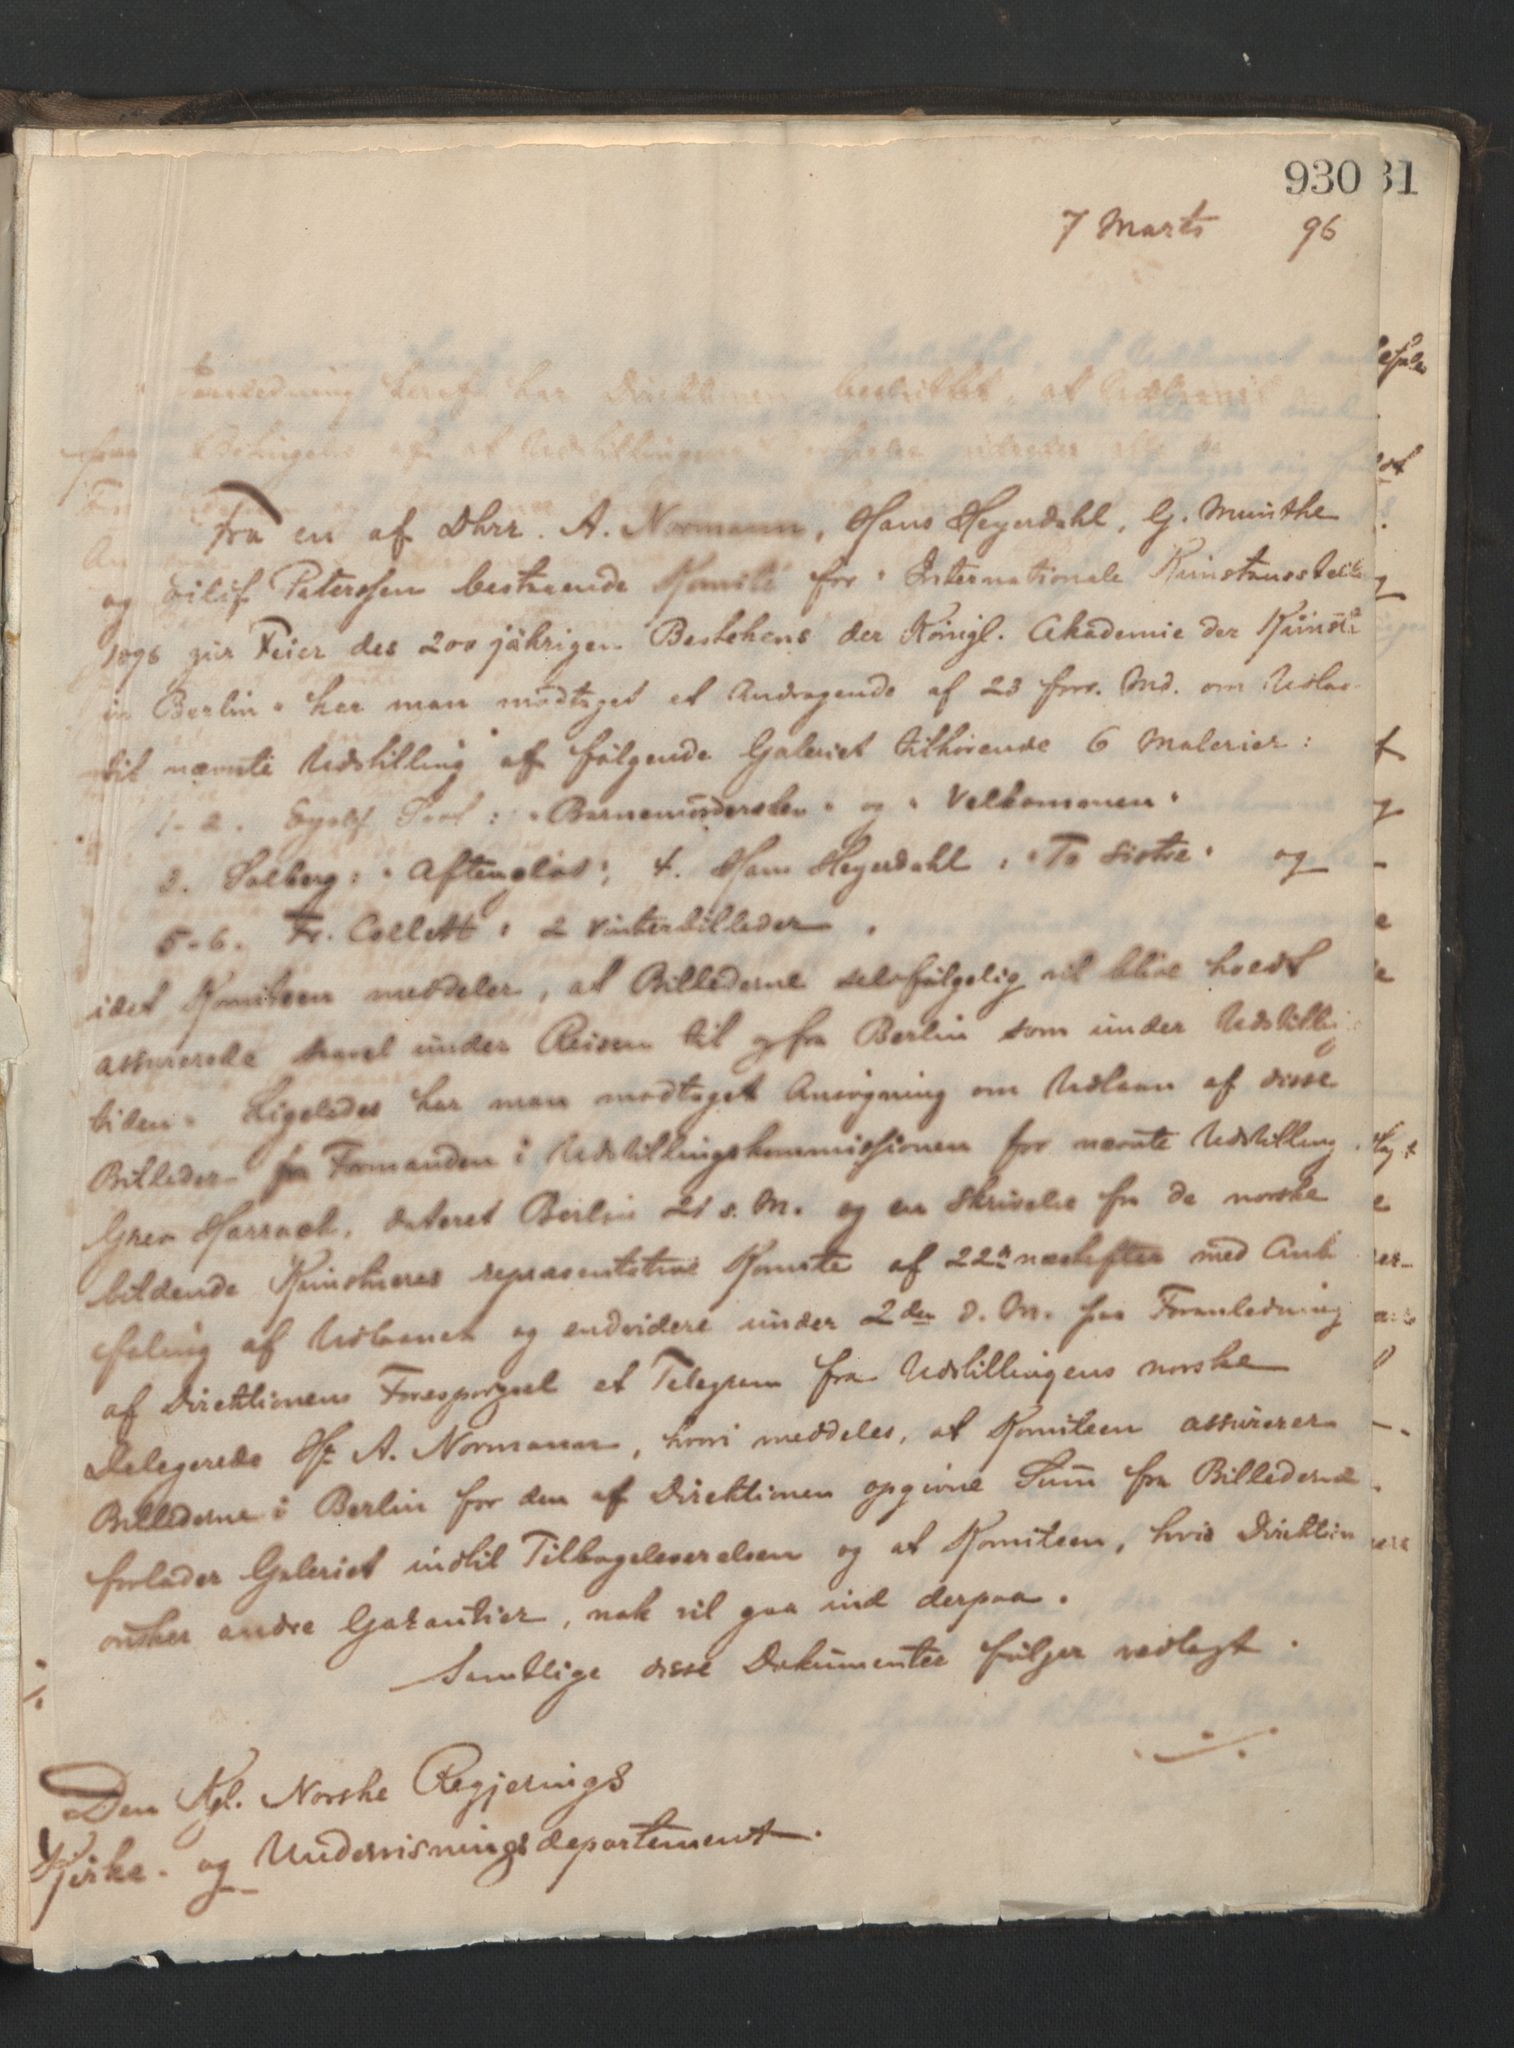 930 31
7 Marts 96
Fra en af Dhrr. A. Normann, Hans Heyerdahl, G. Munthe
og Eilif Peterssen bestaaende Komite for "Internationale Kunstausstell
1896 zur Feier des 200 jährigen Bestehens der Königl. Akademie der Künste
in Berlin" har man modtaget et Andragende af 23 forr. Md. om Udlaa-
til nævnte Udstilling af følgende Galeriet tilhørende 6 Malerier:
1-2. Eyolf Soot: "Barnemordersken" og "Velkommen"
3. Solberg: "Aftenglød", 4. Hans Heyerdahl: "To Søstre" og
5-6. Fr. Collett: 2 Vinterbilleder.
idet Komiteen meddeler, at Billederne selvfølgelig vil blive hvert
assurerede saavel under Reisen til og fra Berlin som under Udstilli
tiden. Ligeledes har man modtaget Ansøgning om Udlaan af disse
Billeder fra Formanden i Udstillingskommissionen for nævnte Udstilling
Grev Harrach, dateret Berlin 21 s. M. og en Skrivelse fra de norske
bildende Kunstneres repræsentative Komite af 22n næstefter med Anb
faling af Udlaanet og endvidere under 2den d. M. paa Foranledning
af Direktionens Forespørgsel et Telegram fra Udstillingens norske
Delegerede Hr. A. Normann, hvori meddeles, at Komiteen assurerer
Billederne i Berlin for den af Direktionen opgivne Sum fra Billederne
forlader Galeriet indtil Tilbageleverelsen og at Komiteen, hvis Direktion
ønsker andre Garantier, nok vil gaa ind derpaa.
Samtlige disse Dokumenter følger vedlagt.
Den Kgl. Norske Regjerings
Kirke- og Undervisningsdepartement.